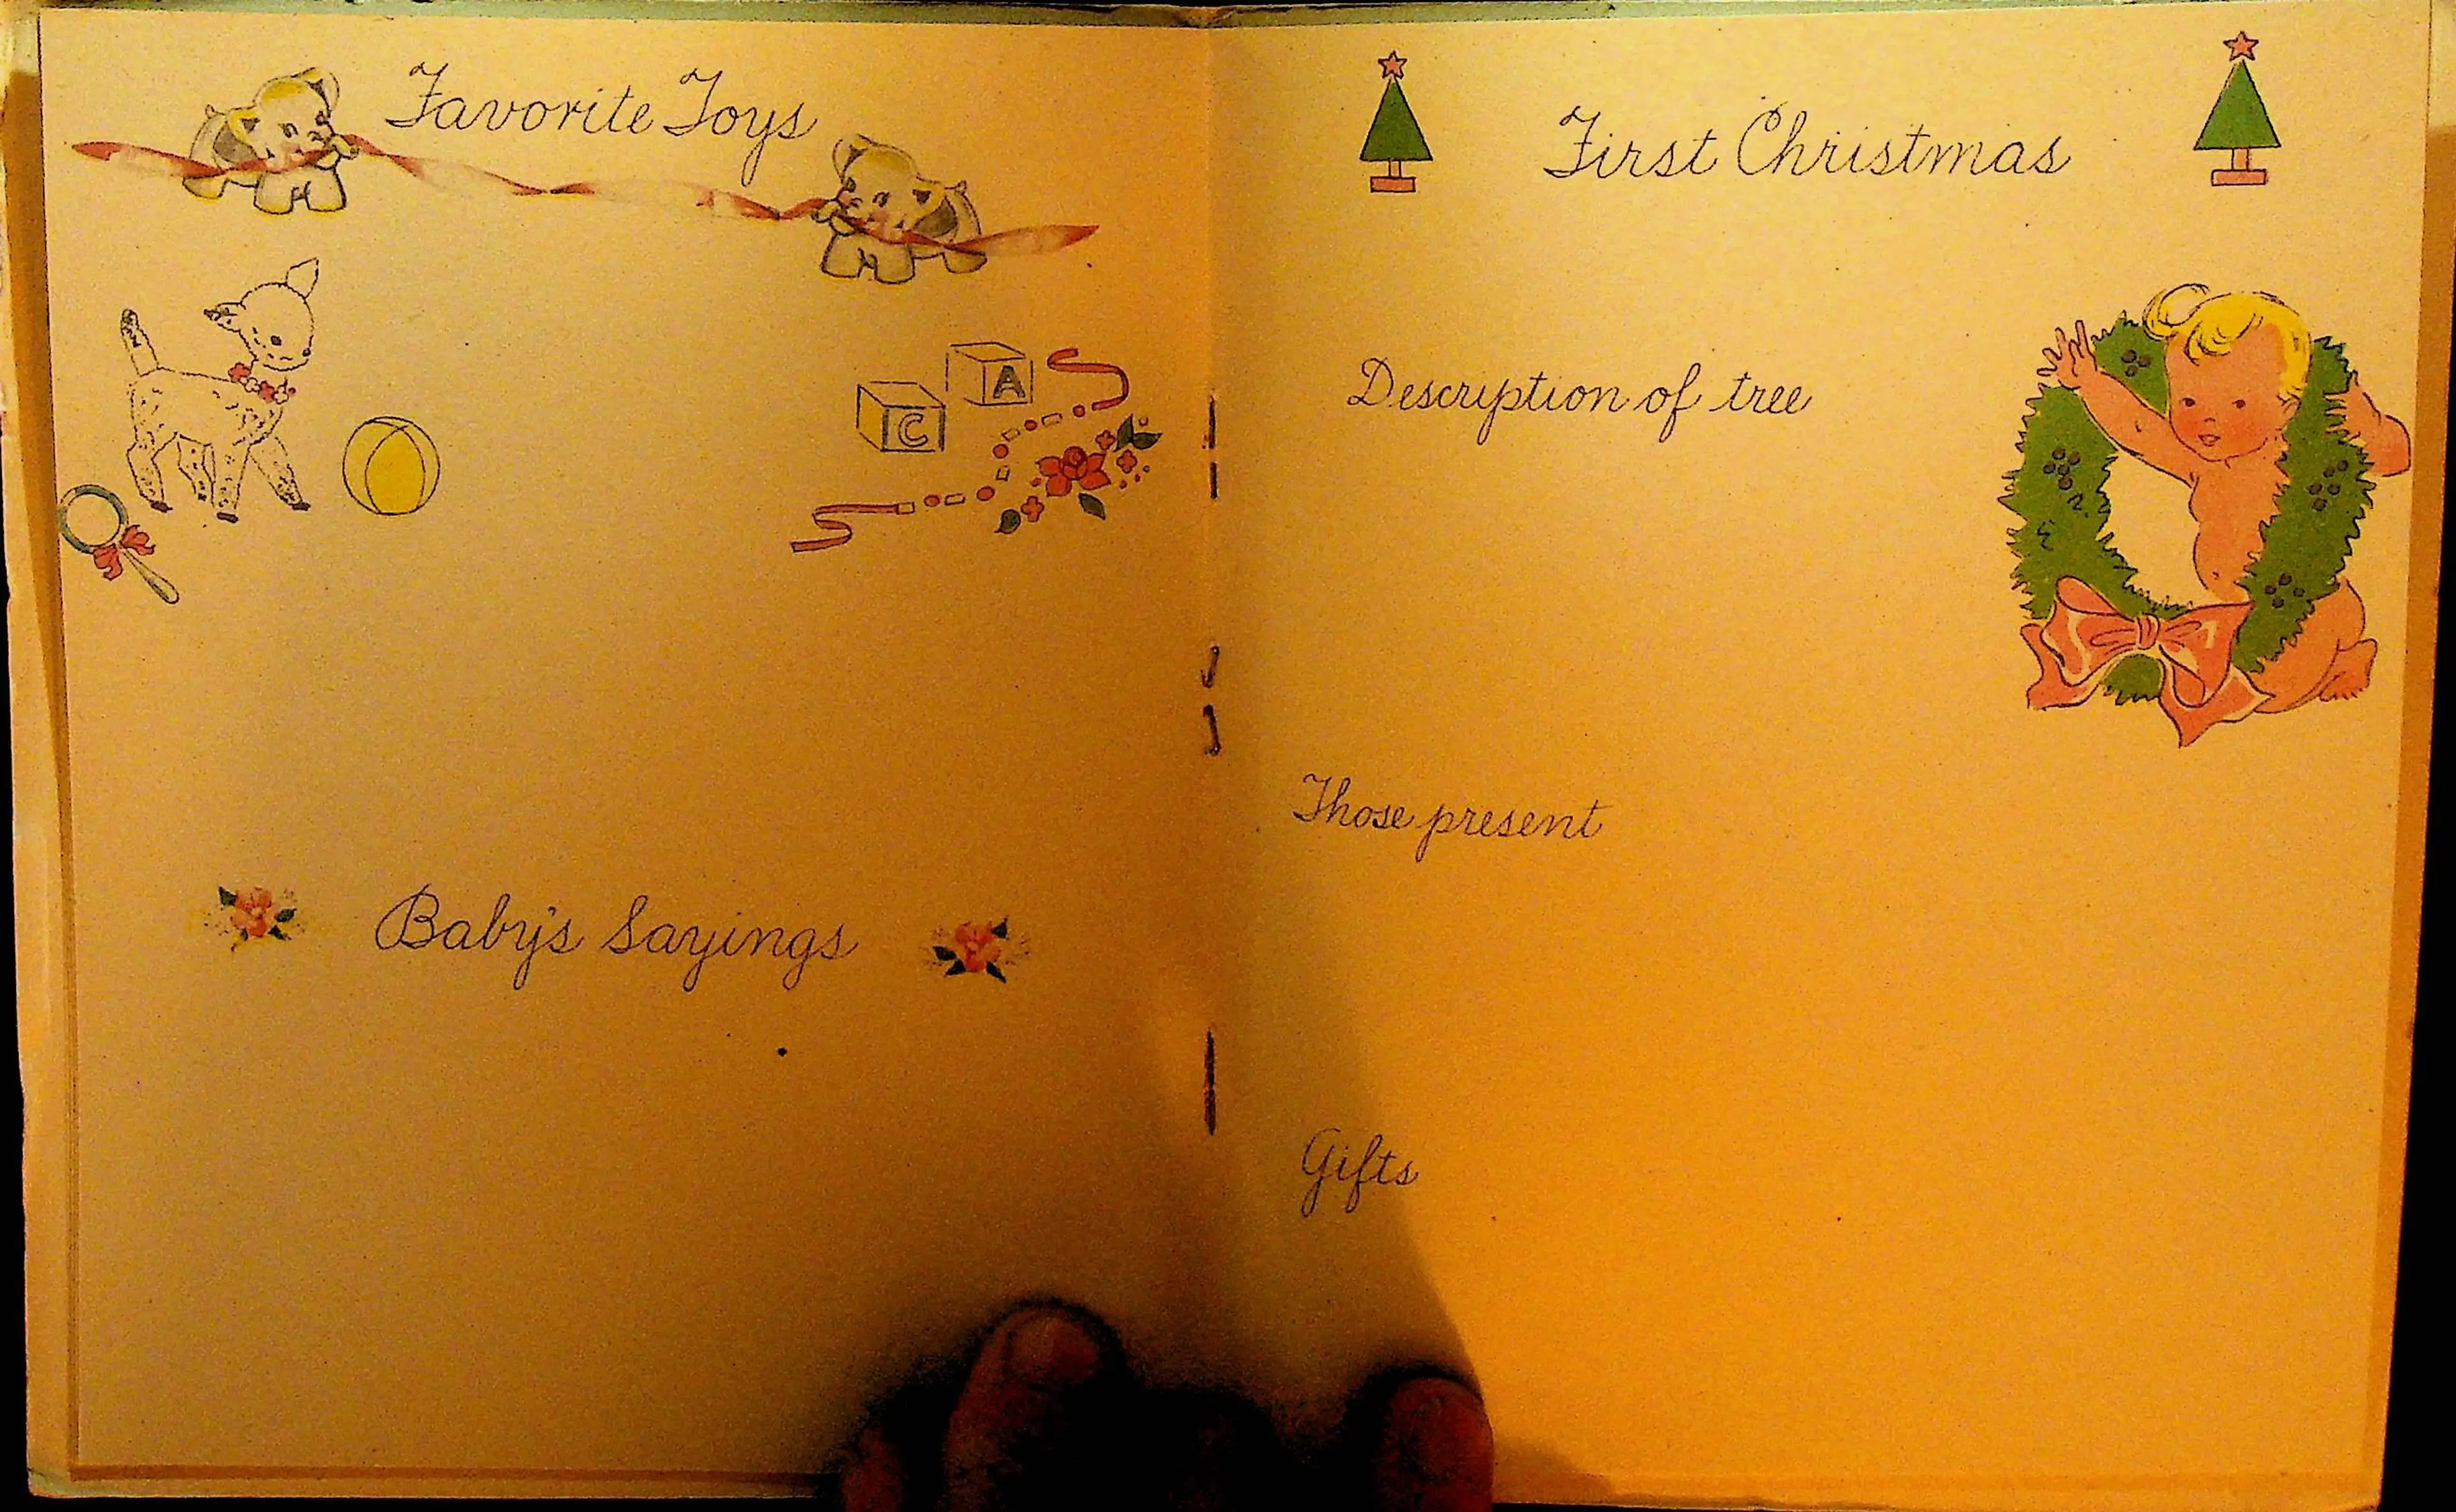 Favorite Toys
A
C
Baby's Sayings
First Christmas
Description of tree
Those present
Gifts